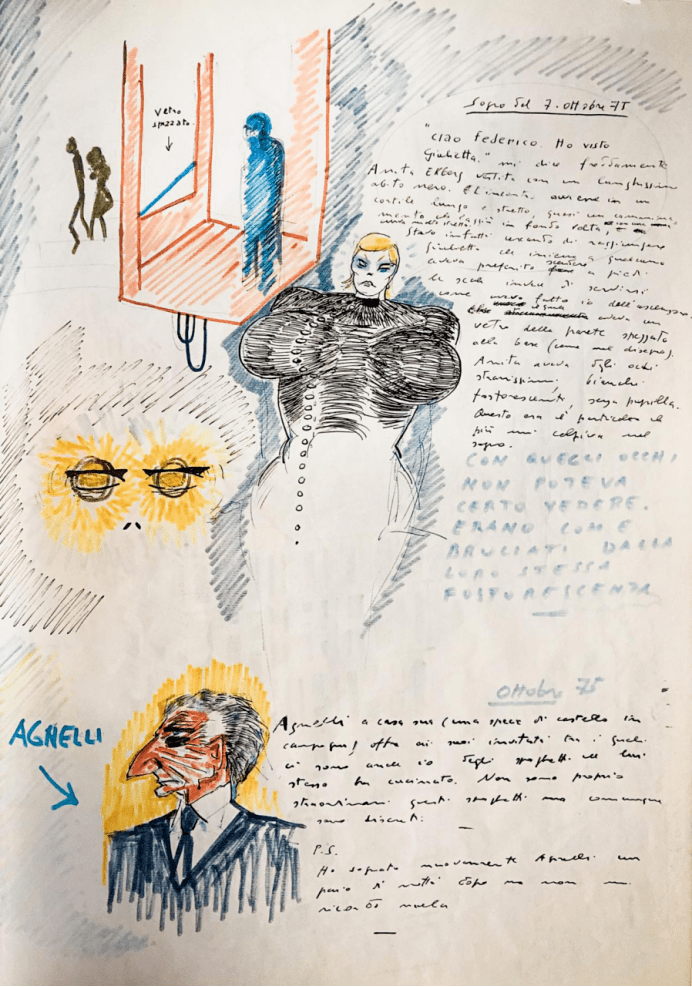 Vetro
spezzato
Sogno del 7. ottobre 75
"Ciao Federico. Ho visto
Giulietta." mi dice freddamente
Anita Ekberg vestita con un lunghissimo
abito nero. El incontro avviene in un
cortile lungo e stretto, quasi un
in fondo
Stavo infatti cercando di raggiungere
Giulietta che insieme a qualcuno
aveva preferito scendere a piedi
le scale invece di servirsi
come fatto io dell'ascensore
aveva un
vetro della parete spezzato
alla base (come nel disegno).
Anita aveva degli occhi
stranissimi, bianchi
fosforescenti, senza pupilla.
Questo era il particolare che
più mi colpiva nel
sogno.
CON QUEGLI OCCHI
NON POTEVA
CERTO VEDERE.
ERANO COME
BRUCIATI DALLA
LORO STESSA
FOSFORESCENZA
ottobre 75
AGNELLI
Agnelli a casa sua (una specie di castello in
campagna) offre ai suoi invitati tra i quali
ci sono anche io degli spaghetti che lui
stesso ha cucinato. Non sono proprio
straordinari questi spaghetti ma comunque
sono discreti.
P.S.
Ho sognato nuovamente Agnelli un
paio di notti dopo ma non mi
ricordo nulla